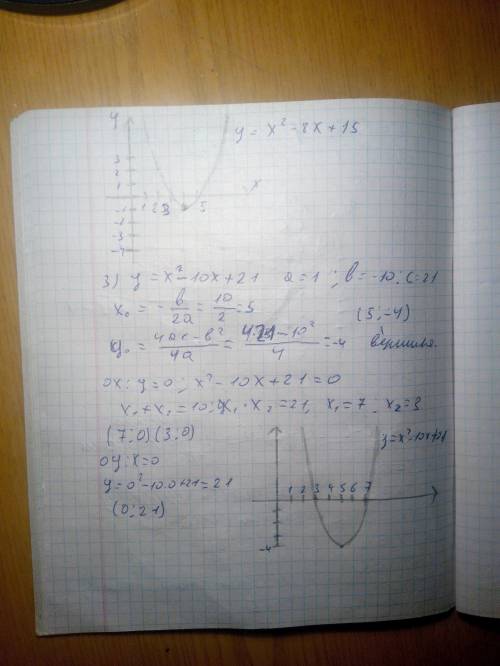 y
y = x² - 8x + 15
3
2
1
x
1 2 3 5
-1
-3
-4
3) y = x² - 10x + 21 a = 1 ; b = -10 ; c = 21
x₀ = - b/2a = 10/2 = 5 (5; -4)
y₀ = (4ac - b²)/4a = (4·21 - 10²)/4 = -4 вершина.
ox: y = 0 ; x² - 10x + 21 = 0
x₁ + x₂ = 10; x₁ · x₂ = 21, x₁ = 7 x₂ = 3
(7; 0) (3; 0)
y = x² - 10x + 21
oy: x = 0
y = 0² - 10·0 + 21 = 21
(0; 21)
1 2 3 4 5 6 7
-4